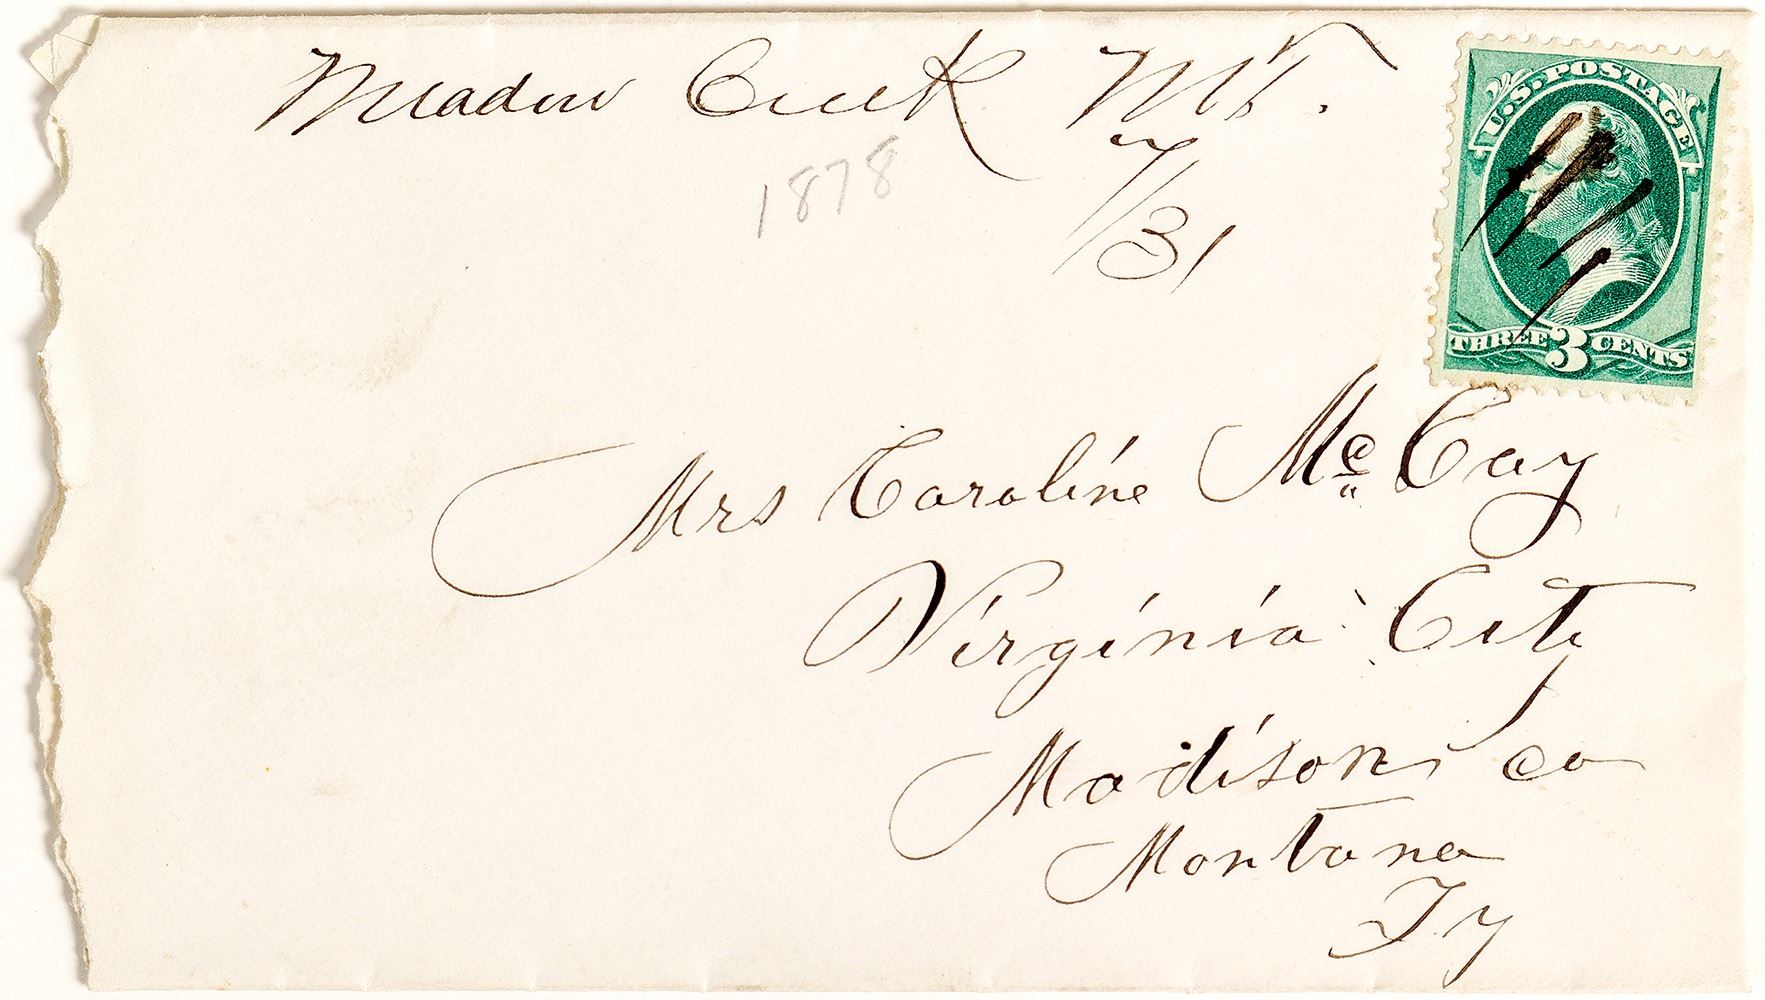 Meadow Creek M.T.
7/31
1878
U.S. POSTAGE
THREE 3 CENTS
Mrs Caroline Mc Cay
Virginia City
Madison co
Montana
Ty